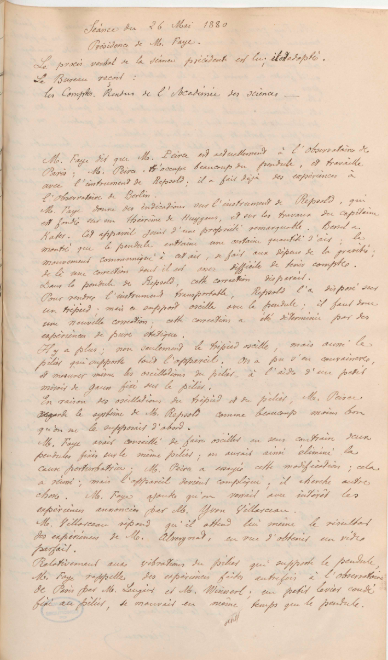 Séance du 26 Mai 1880
Présidence de M. Faye.
Le procès verbal de la séance précédente est lu, et adopté.
Le Bureau reçoit :
Les Comptes Rendus de l'Académie des Sciences
M. Faye dit que M. Peirce est actuellement à l'observatoire de
Paris ; M. Peirce s'occupe beaucoup du pendule, et travaille
avec l'instrument de Repsold ; il a fait déjà des expériences à
l'Observatoire de Berlin
M. Faye donne des indications sur l'instrument de Repsold, qui
est fondé sur un théorème de Huygens, et sur les travaux du capitaine
Kater. Cet appareil jouit d'une propriété remarquable. Bessel a
montré que le pendule entraîne une certaine quantité d'air ; le
mouvement communiqué à cet air, se fait aux dépens de la gravité ;
de là une correction dont il est assez difficile de tenir compte.
Dans le pendule de Repsold, cette correction disparaît.
Pour rendre l'instrument transportable, Repsold l'a disposé sur
un trépied ; mais ce support oscille avec le pendule ; il faut donc
une nouvelle correction ; cette correction a été déterminée par des
expériences de pure statique.
Il y a plus ; non seulement le trépied oscille, mais aussi le
pilier qui supporte tout l'appareil. On a pu s'en convaincre,
et mesurer même les oscillations du pilier, à l'aide d'un petit
miroir de fixé sur le pilier.
En raison des oscillations du trépied et du pilier, M. Peirce
regarde le système de M. Repsold comme beaucoup moins bon
qu'on ne le supposait d'abord.
M. Faye avait conseillé de faire osciller en sens contraire deux
pendules fixés sur le même pilier ; on aurait ainsi éliminé la
cause perturbatrice. M. Peirce a essayé cette modification ; cela
a réussi ; mais l'appareil devient compliqué ; il cherche autre
chose. M. Faye ajoute qu'on verrait avec intérêt les
expériences annoncées par M. Yvon Villarceau.
M. Villarceau répond qu'il attend lui même le résultat
des expériences de M. en vue d'obtenir un vide
parfait.
Relativement aux vibrations du pilier qui supporte le pendule,
M. Faye rappelle des expériences faites autrefois à l'observatoire
de Paris par M. Laugier et M. Winnerl ; un petit levier coudé
fixé au pilier, se mouvait en même temps que le pendule.